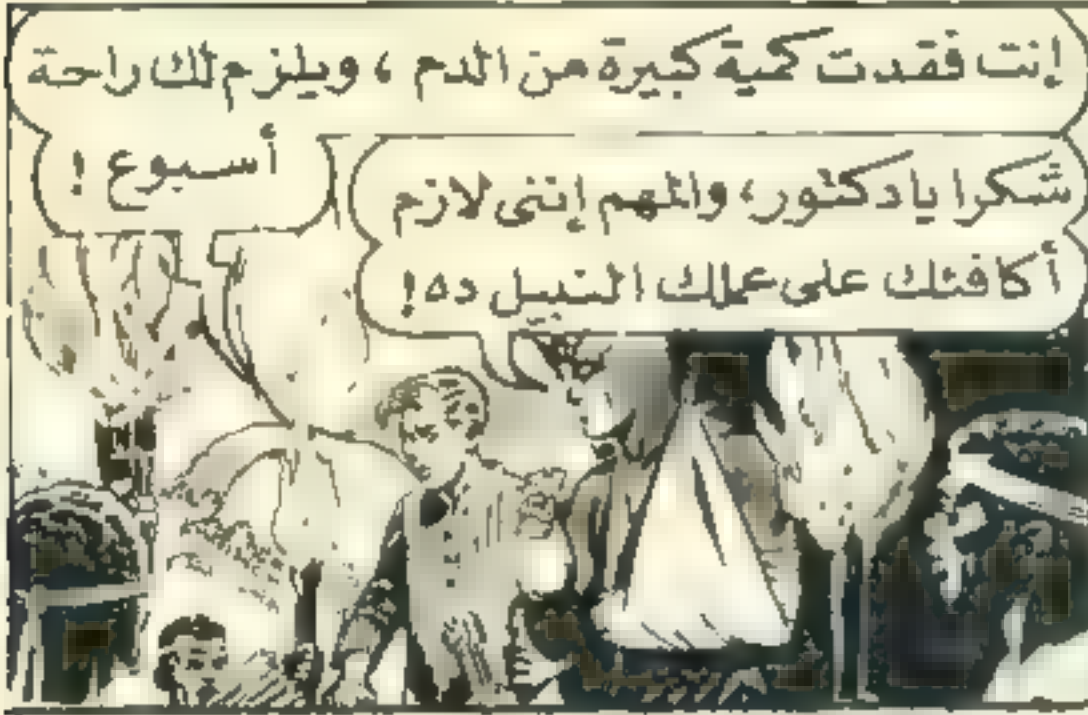 إنت فقدت كمية كبيرة من الدم ، ويلزم لك راحة
أسبوع !
شكرا يا دكتور، والمهم إننى لازم
أكافئك على عملك النبيل ده !